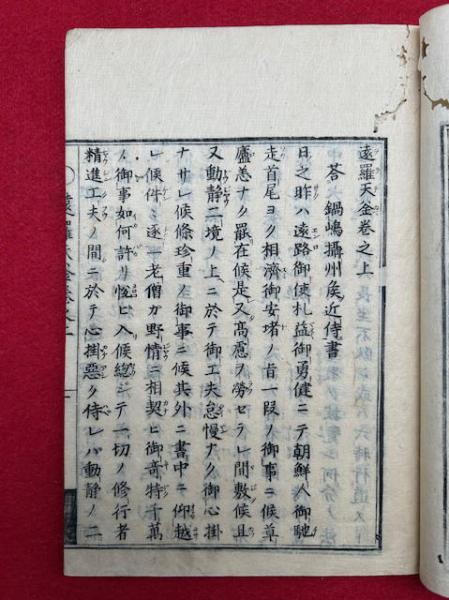 遠羅天釜巻之上
答 鍋嶋攝州矦近侍書
日之昨ハ遠路御使札益御勇健ニテ朝鮮人御馳
走首尾ヨク相濟御安堵ノ旨一段ノ御事ニ候草
廬恙ナク罷在候是又髙慮ヲ勞セラレ間敷候且
又動静二境ノ上ニ於テ御工夫怠慢ナク御心掛
ナサレ候條珍重ノ御事ニ候其外ニ書中ニ仰越
レ候件ミ逐一老僧カ野情ニ相契ヒ御竒特千萬
ノ御事如何許リ悅ヒ入候總シテ一切ノ修行者
精進工夫ノ間ニ於テ心掛惡ク侍レバ動静ノ二
遠羅天釜巻之上